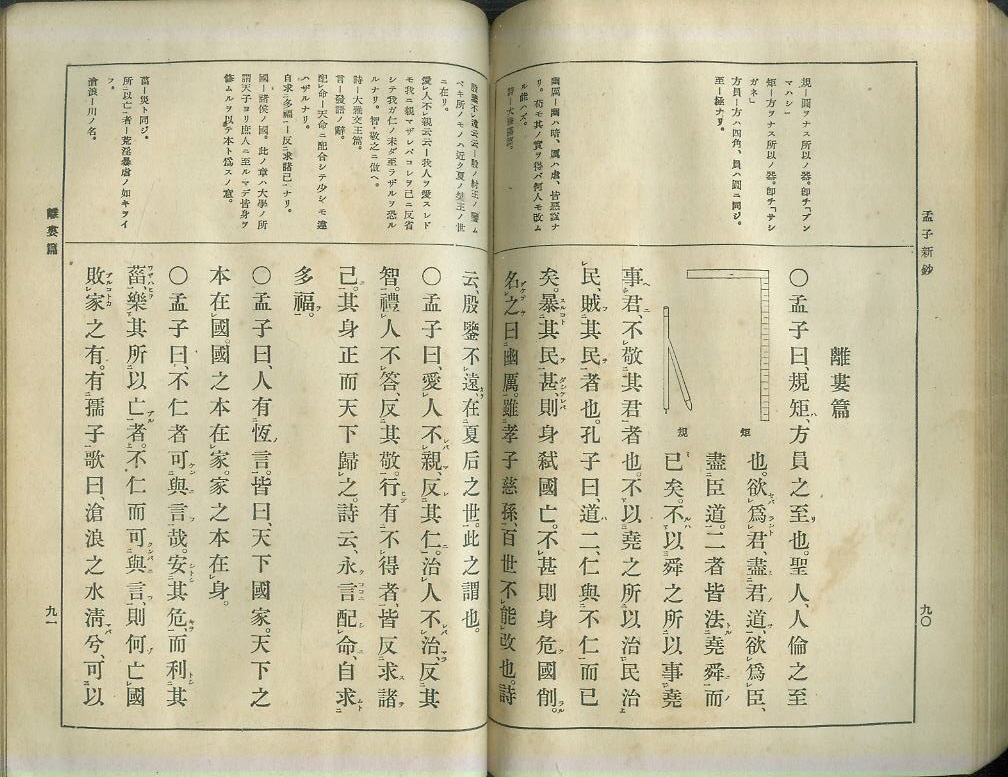 孟子新鈔
九〇
規―圓ヲナス所以ノ器。卽チ「ブン
マハシ」
矩―方ヲナス所以ノ器。卽チ「サシ
ガネ」
方員―方ハ四角、員ハ圓ニ同ジ。
至―極ナリ。
幽厲―幽ハ暗、厲ハ虐、皆惡諡ナ
リ。苟モ其ノ實ヲ得バ何人モ改ム
ル能ハズ。
離婁篇
〇孟子曰、規矩、方員之至也。聖人、人倫之至
也。欲爲君、盡君道、欲爲臣、
盡臣道。二者皆法堯舜而
已矣。不以舜之所以事堯
矩
規
事君、不敬其君者也。不以堯之所以治民治
民、賊其民者也。孔子曰、道二、仁與不仁而已
矣。暴其民甚、則身弑國亡。不甚則身危國削。
名之曰幽厲。雖孝子慈孫、百世不能改也。詩
云、殷鑒不遠、在夏后之世。此之謂也。
〇孟子曰、愛人不親、反其仁。治人不治、反其
智。禮人不答、反其敬。行有不得者、皆反求諸
己。其身正而天下歸之。詩云、永言配命、自求
多福。
〇孟子曰、人有恆言。皆曰、天下國家。天下之
本在國。國之本在家。家之本在身。
〇孟子曰、不仁者可與言哉。安其危、而利其
菑、樂其所以亡者。不仁而可與言、則何亡國
敗家之有。有孺子歌曰、滄浪之水淸兮、可以
ベキ所ノモノハ近ク夏ノ桀王ノ世
ニ在リ。
愛人不親云云―我人ヲ愛スレド
モ我ニ親マザレバコレヲ己ニ反省
シテ我ガ仁ノ未ダ至ラザルヲ恐ル
ルナリ。智敬之ニ倣ヘ。
詩―大雅文王篇。
言―發語ノ辭。
配命―天命ニ配合シテ少シモ違
ハザルナリ。
自求多福―反求諸己ナリ。
國―諸侯ノ國。此ノ章ハ大學ノ所
謂天子ヨリ庶人ニ至ルマデ皆身ヲ
修ムルヲ以テ本ト爲スノ意。
菑―災ト同ジ。
所以亡者―荒淫暴虐ノ如キヲイ
フ。
滄浪―川ノ名。
離婁篇
九一